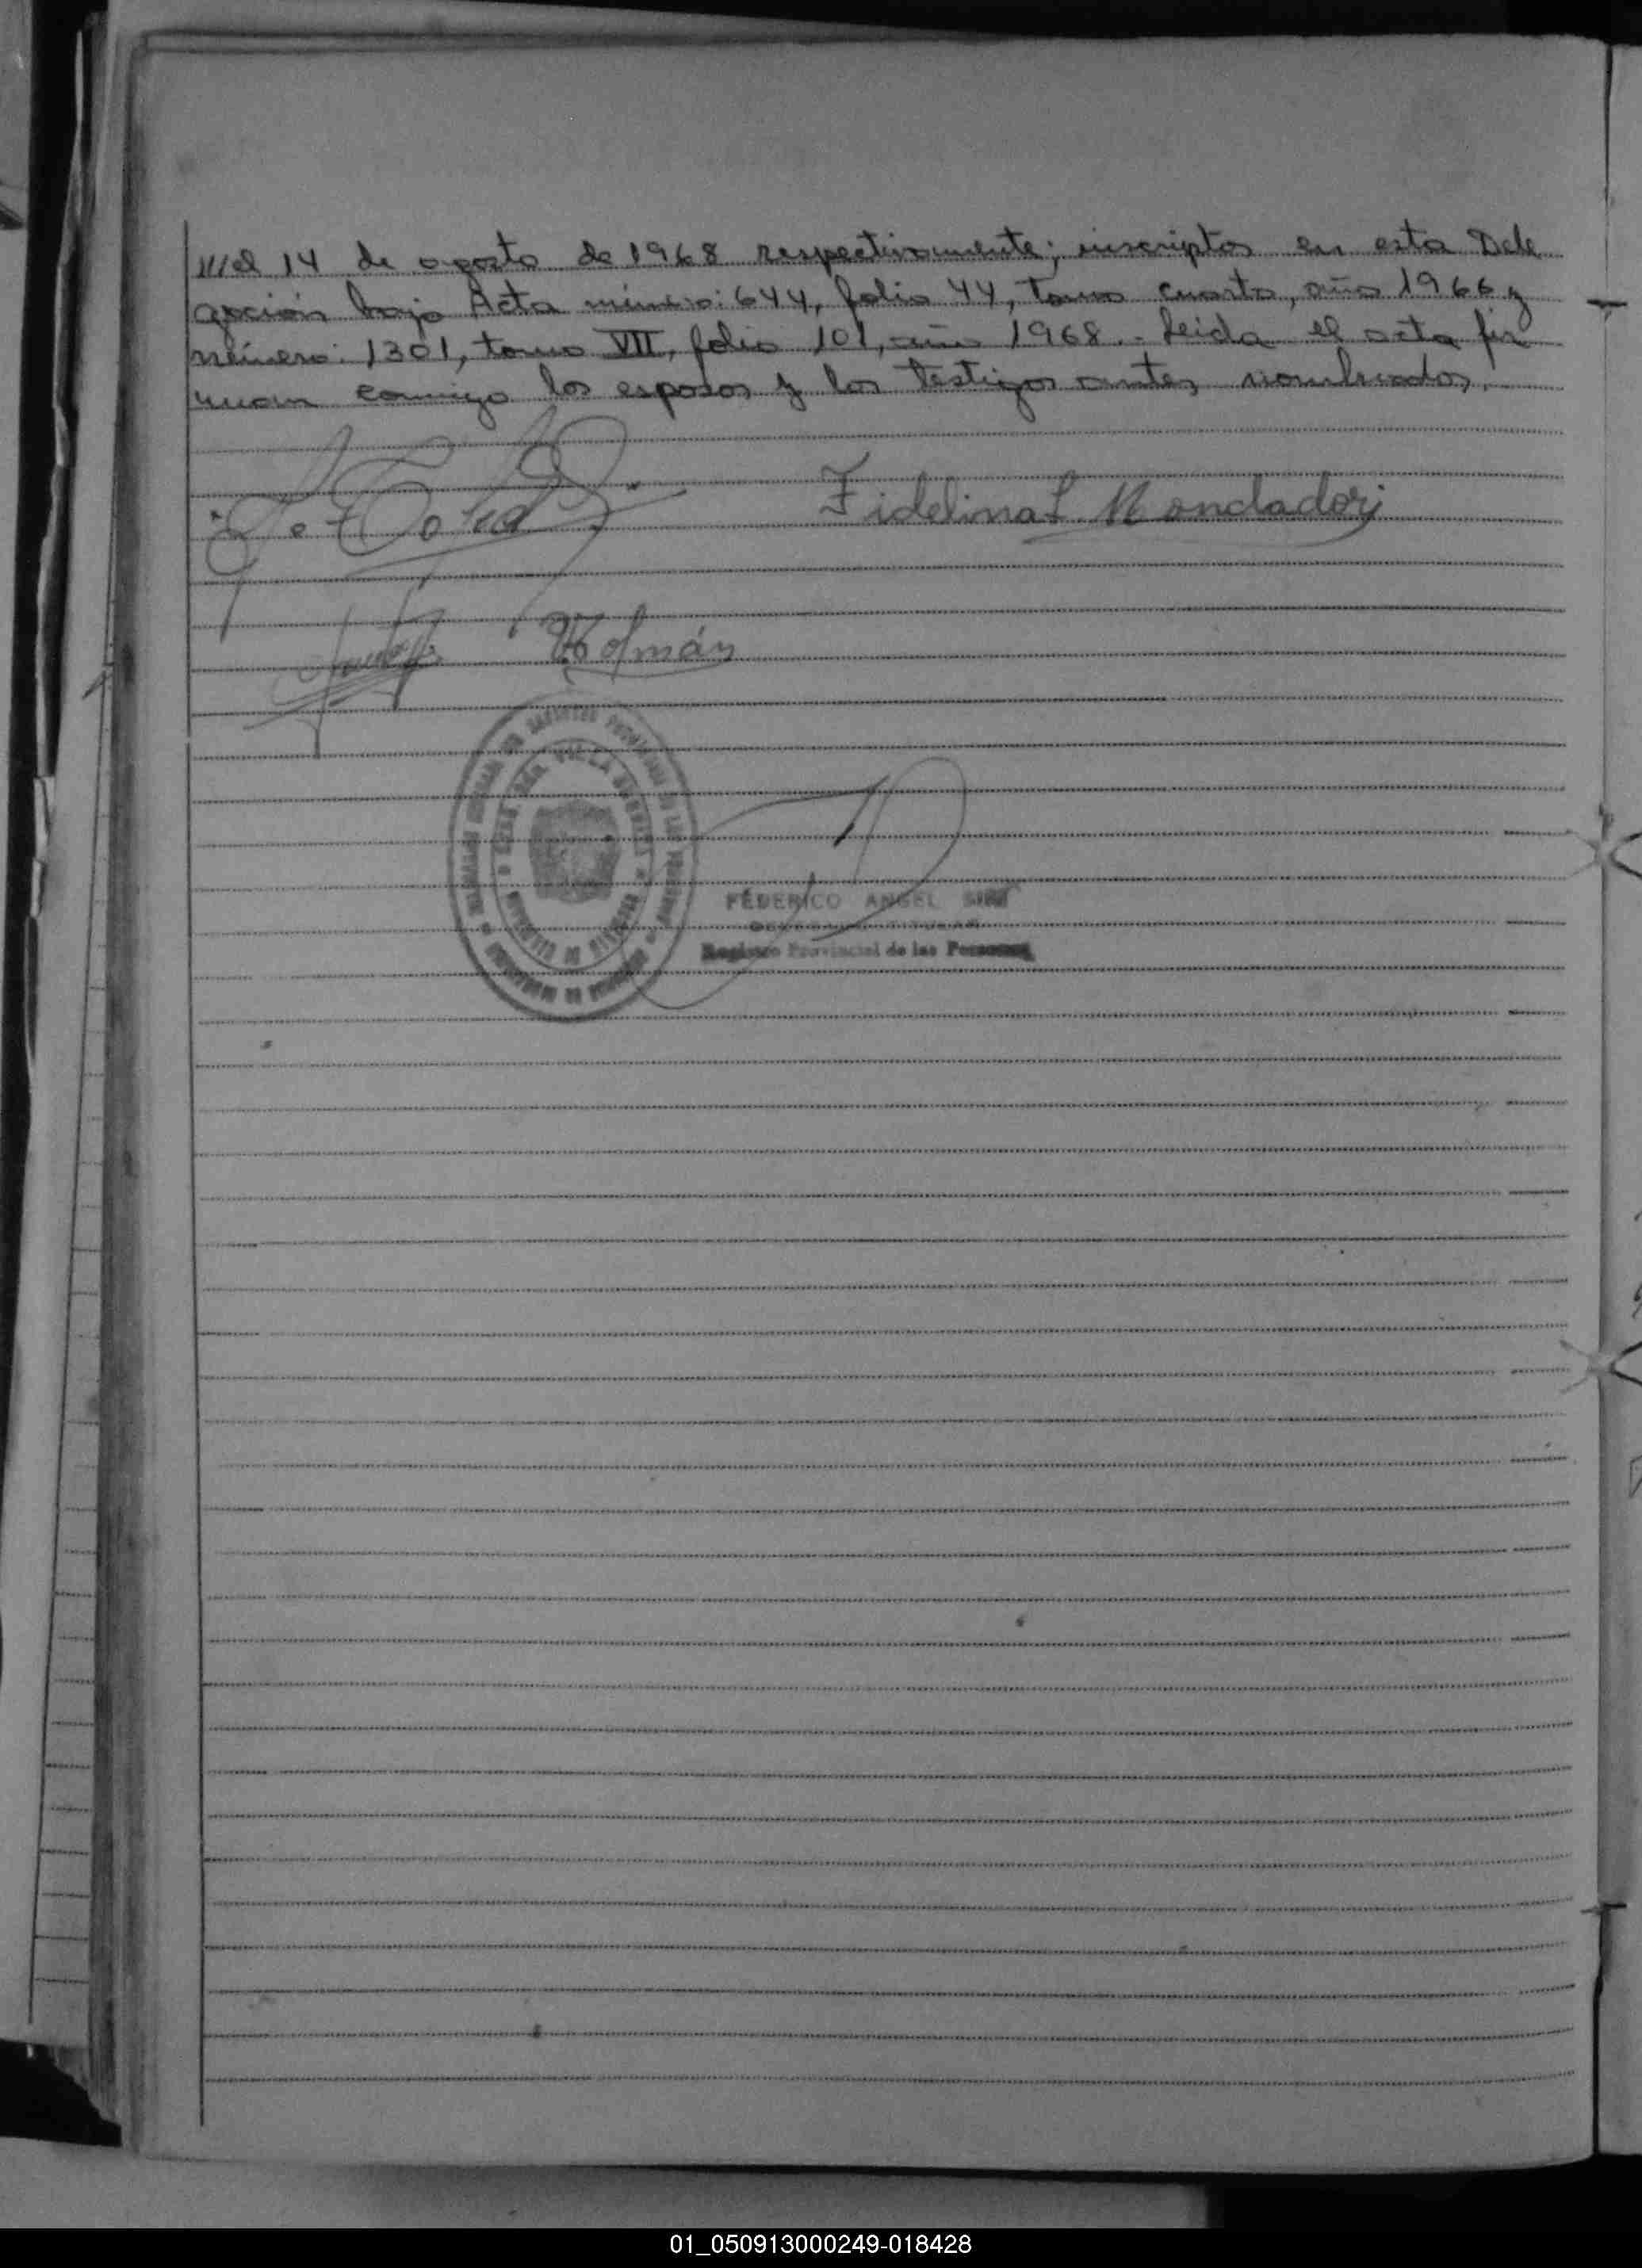 ///el 14 de agosto de 1968 respectivamente; inscriptos en esta Dele
gación bajo Acta número: 644, folio 44, tomo cuarto, año 1966 y
número: 1301, tomo VII, folio 101, año 1968.- Leída el acta fir
man conmigo los esposos y los testigos antes nombrados.
Fidelina L. Mondadori
FEDERICO ANGEL
Registro Provincial de las Personas
01_050913000249-018428